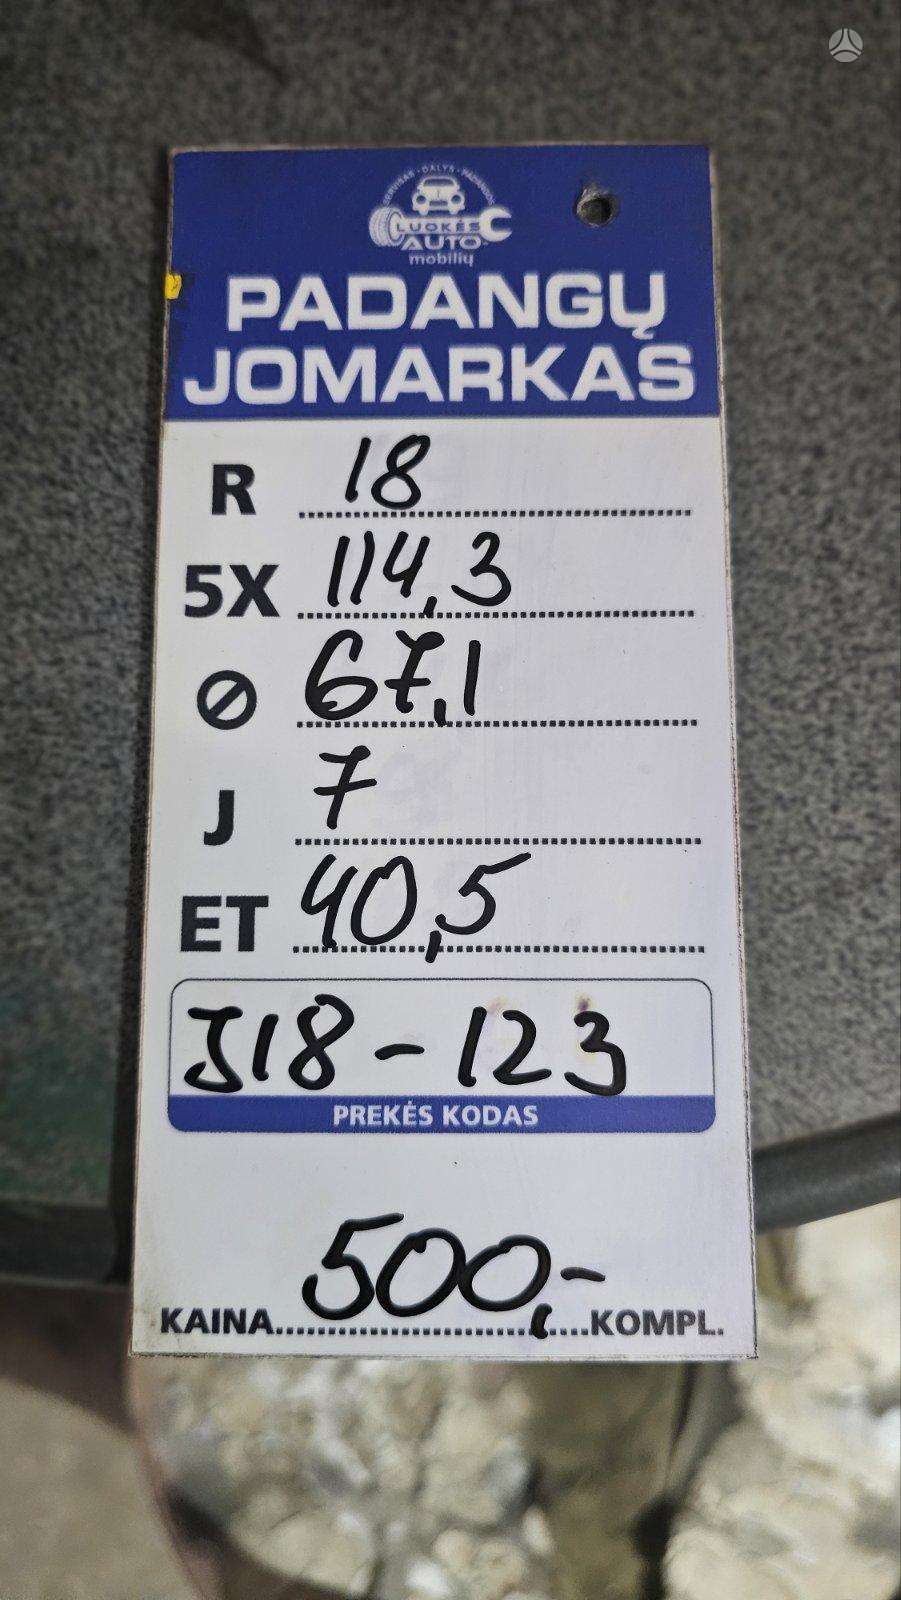 SERVISAS · DALYS · PADANGOS
LUOKĖS
AUTO
mobilių
PADANGŲ
JOMARKAS
R 18
5X 114,3
⌀ 67,1
J 7
ET 40,5
J18-123
PREKĖS KODAS
KAINA 500,- KOMPL.